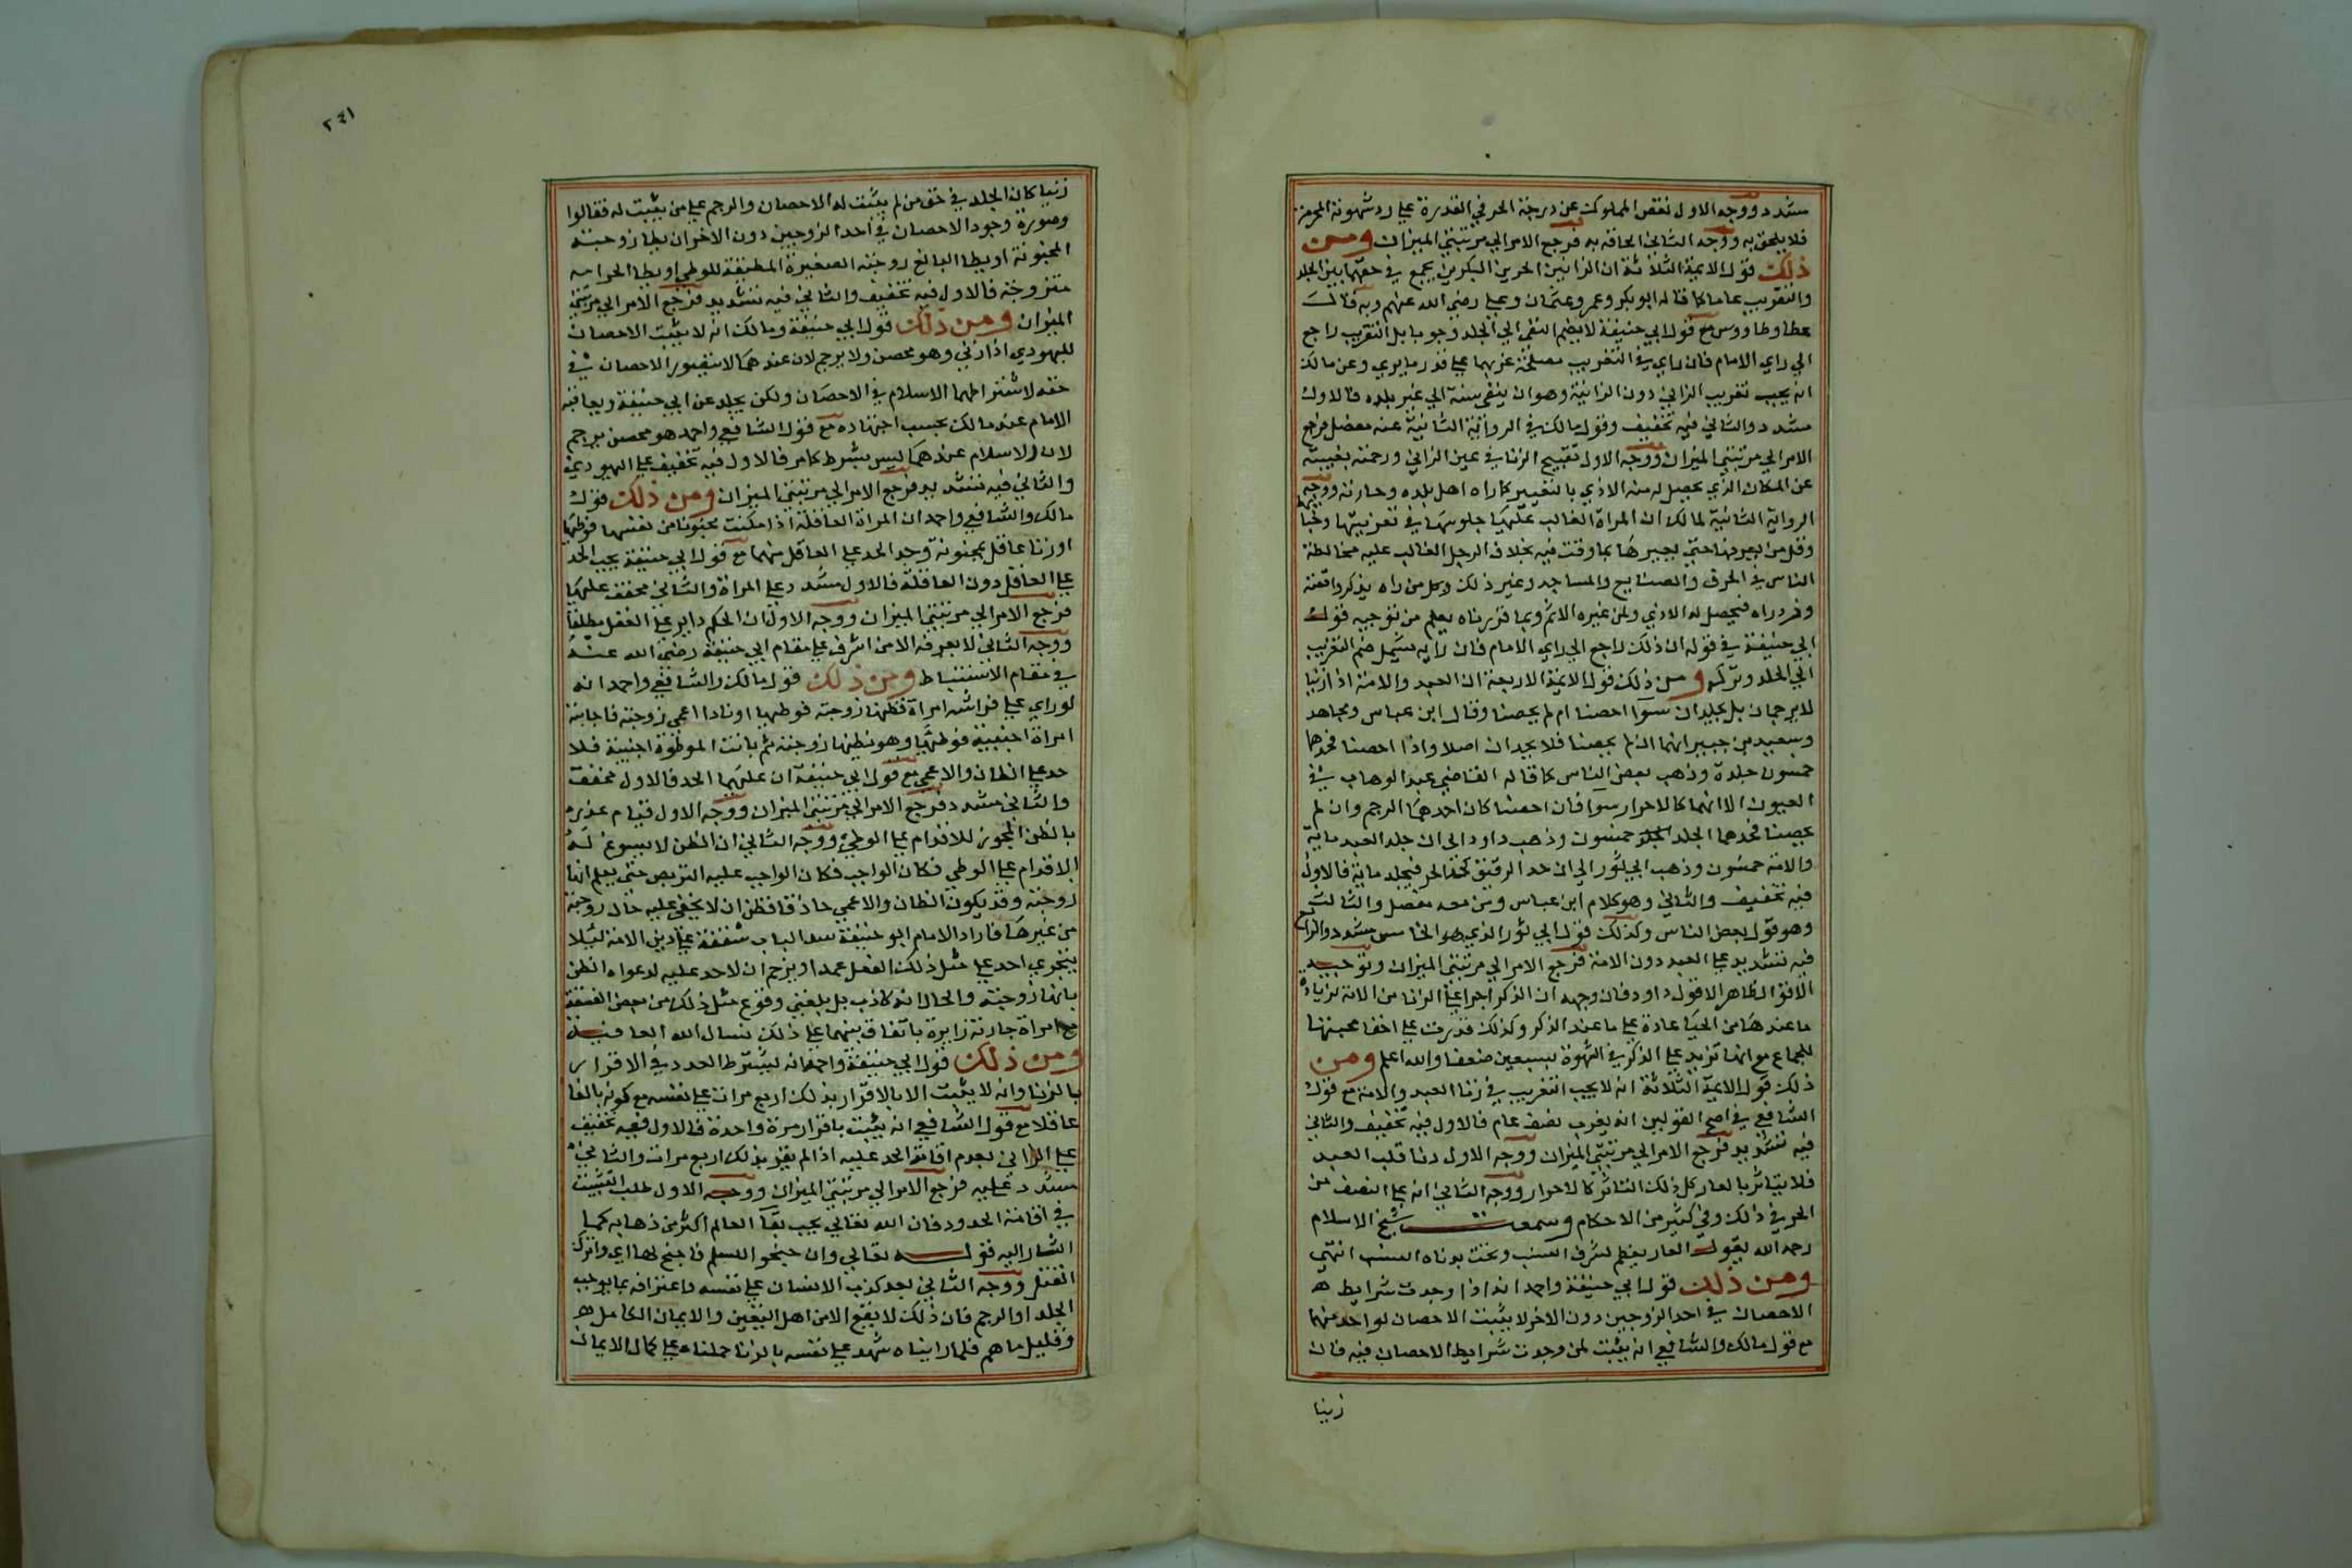 مشدد ووجه الاول نقص المملوك عن درجة الحر في القدرة علي رد شهوته المحرمة
فلا يلحق به ووجه الثاني الحاقه به فرجع الامر الي مرتبتي الميزان ومن
ذلك قول الايمة الثلاثة ان الزانيين الحرين البكرين يجمع في حقهما بين الجلد
والتغريب عاما كما قاله ابو بكر وعمر وعثمان وعلي رضي الله عنهم وبه قالت
عطا وطاووس مع قول ابي حنيفة لا يضم النفي الي الجلد وجوبا بل التغريب راجع
الي راي الامام فان راي في التغريب مصلحة غربهما علي قدر ما يري وعن مالك
انه يجب تغريب الزاني دون الزانية وهو ان ينفي سنة الي غير بلده فالاول
مشدد والثاني فيه تخفيف وقول مالك في الرواية الثانية عنه مفصل فرجع
الامر الي مرتبتي الميزان ووجه الاول تقبيح الزنا في عين الزاني ورحمته بغيبته
عن المكان الذي يحصل له منه الاذي بالتعيير كلما راه اهل بلده وحارته ووجه
الرواية الثانية لمالك ان المراة الغالب عليها جلوسها في
وقل من يعرفها حتي يعيرها بما وقعت فيه بخلاف الرجل الغالب عليه مخالطة
الناس في الحرف والصنايع والمساجد وغير ذلك وكل من راه يذكر واقعته
وازدراه فيحصل له الاذي ولمن غيره الاثم وبما قررناه يعلم من توجيه قول
ابي حنيفة في قوله ان ذلك راجع الي راي الامام فان رايه يشمل ضم التغريب
الي الجلد وتركه ومن ذلك قول الايمة الاربعة ان العبد والامة اذا زنيا
لا يرجمان بل يجلدان سوآ احصنا ام لم يحصنا وقال ابن عباس ومجاهد
وسعيد بن جبير انهما ان لم يحصنا فلا يحدان اصلا واذا احصنا فحدهما
خمسون جلدة وذهب بعض الناس كما قاله القاضي عبد الوهاب في
العيون الا انهما كالاحرار سوآ فان احصنا كان احدهما الرجم وان لم
يحصنا فحدهما الجلد خمسون وذهب داود الي ان جلد العبد ماية
والامة خمسون وذهب ابي ثور الي ان حد الرقيق كحد الحر فيجلد ماية فالاول
فيه تخفيف والثاني وهو كلام ابن عباس ومن معه مفصل والثالث
وهو قول بعض الناس وكذلك قول ابي ثور الذي هو الخامس مشدد والرابع
فيه تشديد علي العبد دون الامة فرجع الامر الي مرتبتي الميزان وتوجيه
الاقوال ظاهر الا قول داود فان وجهه ان الذكر اجرا علي الزنا من الامة لزيادة
ما عندها من الحيا عادة علي ما عند الذكر وكذلك قدرت علي اخفا محبتها
للجماع مع انها تزيد علي الذكر في الشهوة بسبعين ضعفا والله اعلم ومن
ذلك قول الايمة الثلاثة انه لا يجب التغريب في زنا العبد والامة مع قول
الشافعي في اصح القولين انه يغرب نصف عام فالاول فيه تخفيف والثاني
فيه تشديد فرجع الامر الي مرتبتي الميزان ووجه الاول دنا قلب العبد
فلا يتاثر بالعار كل ذلك التاثر كالاحرار ووجه الثاني انه علي النصف من
الحر في ذلك وفي كثير من الاحكام وسمعت شيخ الاسلام
رحمه الله يقول العار يعظم لشرف النسب ويخف بدناه النسب انتهي
ومن ذلك قول ابي حنيفة واحمد انه اذا وجدت شرايط
الاحصان في احد الزوجين دون الاخر لا يثبت الاحصان لواحد منهما
مع قول مالك والشافعي انه يثبت لمن وجدت شرايط الاحصان فيه فان
زنيا
٢٤١
زنيا كان الجلد في حق من لم يثبت له الاحصان والرجم علي من يثبت له فقالوا
وصورة وجود الاحصان في احد الزوجين دون الاخر ان يطا زوجته
المجنونة او يطا البالغ زوجته الصغيرة المطيقة للوطي او يطا الحر امه
متزوجة فالاول فيه تخفيف والثاني فيه تشديد فرجع الامر الي مرتبتي
الميزان ومن ذلك قول ابي حنيفة ومالك انه لا يثبت الاحصان
لليهودي اذا زني وهو محصن ولا يرجم لان عندهما لا يتصور الاحصان في
حقه لاشتراطهما الاسلام في الاحصان ولكن يجلد عن ابي حنيفة ويعاقبه
الامام عند مالك بحسب اجتهاده مع قول الشافعي واحمد هو محصن يرجم
لان الاسلام عندهما ليس بشرط كامر فالاول فيه تخفيف علي اليهودي
والثاني فيه تشديد فرجع الامر الي مرتبتي الميزان ومن ذلك قول
مالك والشافعي واحمد ان المراة العاقلة اذا مكنت مجنونا من نفسها فوطيها
او زنا عاقل بمجنونة وجد الحد علي العاقل منهما مع قول ابي حنيفة يجب الحد
علي العاقل دون العاقلة فالاول مشدد علي المراة والثاني مخفف عليها
فرجع الامر الي مرتبتي الميزان ووجه الاول ان الحكم داير علي العقل مطلقا
ووجه الثاني لا يعرفه الا من اشرف علي مقام ابي حنيفة رضي الله عنه
في مقام الاستنباط ومن ذلك قول مالك والشافعي واحمد انه
لو راي علي فراشه امراة فظنها زوجته فوطيها او نادا اعمي زوجته فاجابته
امراة اجنبية فوطيها وهو يظنها زوجته ثم بانت الموطوة اجنبية فلا
حد علي الظان والاعمي مع قول ابي حنيفة ان عليهما الحد فالاول مخفف
والثاني مشدد فرجع الامر الي مرتبتي الميزان ووجه الاول قيام عذره
بالظن المجوز للاقدام علي الوطي ووجه الثاني ان الظن لا يسوغ له
الاقدام علي الوطي فكان الواجب فكان الواجب عليه التربص حتي يعلم انها
زوجته وقد يكون الظان والاعمي حاذقا فظن ان لا يخفي عليه حال زوجته
من غيرها فاراد الامام ابو حنيفة سد الباب شفقة علي دين الامة ليلا
يتجري احد علي مثل ذلك الفعل عمدا ويزعم ان لا حد عليه لدعواه الظن
بانها زوجته والحال انه كاذب بل بلغني وقوع مثل ذلك من بعض الفسقة
مع امراة جارته زايرة باتفاق بينهما علي ذلك نسال الله العافية
ومن ذلك قول ابي حنيفة واحمد انه يشترط العدد في الاقرار
بالزنا وانه لا يثبت الا بالاقرار بذلك اربع مرات علي نفسه مع كونه بالغا
عاقلا مع قول الشافعي انه يثبت باقرار مرة واحدة فالاول فيه تخفيف
علي الزاني بعدم اقامة الحد عليه اذا لم يقر بذلك اربع مرات والثاني
مشدد عليه فرجع الامر الي مرتبتي الميزان ووجه الاول طلب التثبت
في اقامة الحدود فان الله تعالي يحب بقآ العالم اكثر من ذهابه كما
اشار اليه قوله تعالي وان جنحوا للسلم فاجنح لها اي واترك
القتل ووجه الثاني بعد كذب الانسان علي نفسه واعترافه بما يوجب
الجلد او الرجم فان ذلك لا يقع الا من اهل اليقين والايمان الكامل
وقليل ما هم فلما رايناه شهد علي نفسه بالزنا حملناه علي كمال الايمان